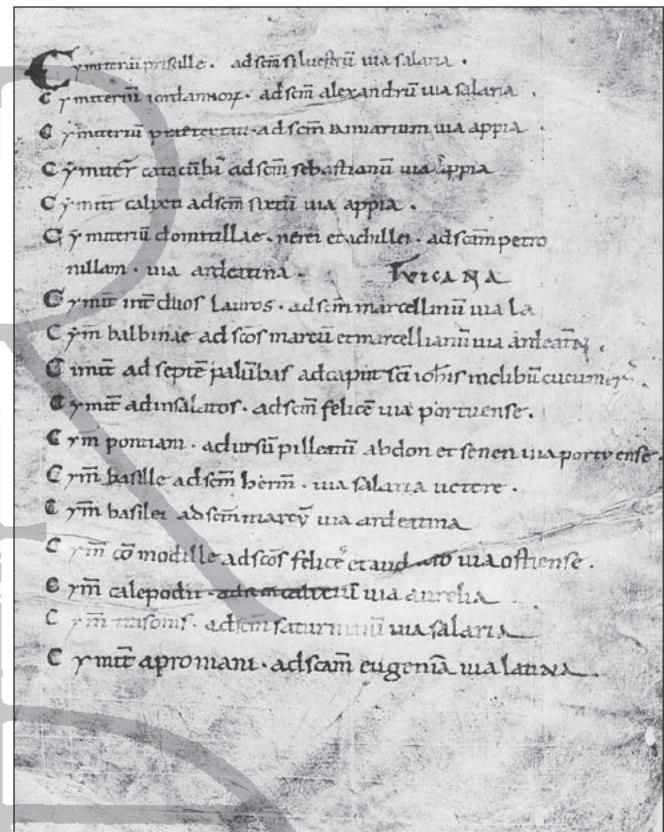 Cymiteriū priscille · ad scm̄ siluestrū uia salaria ·
Cymiteriū iordanorꝝ · ad scm̄ alexandrū uia salaria ·
Cymiteriū praetextati · ad scm̄ ianuarium uia appia ·
Cymiter̄ catacūbi ad scm̄ sebastianū uia appia
Cymit calixti ad scm̄ uia appia ·
Cymiteriū domitillae · nerei et achillei · ad scam̄ petro
nillam · uia ardeatina · TVICANA
Cymit int̄ duos lauros · ad scm̄ marcellinū uia La
Cym̄ balbinae ad scōs marcū et marcellianū uia
Cimit̄ ad septē palūbas ad caput sci iohis in clibū cucumeris ·
Cymit̄ ad insalatos · ad scm̄ felicē uia portuense ·
Cym pontiani · ad ursū pilleatū abdon et sennen uia portuense ·
Cym̄ basille ad scm̄ herm̄ · uia salaria uetere ·
Cym̄ basilei ad scm̄ uia ardeatina
Cym̄ cōmodille ad scōs felicē et uia ostiense ·
Cym̄ calepodii · uia aurelia
Cym̄ trasonis · ad scm̄ saturninū uia salaria
Cymit̄ aproniani · ad scam̄ eugeniā uia latina ·